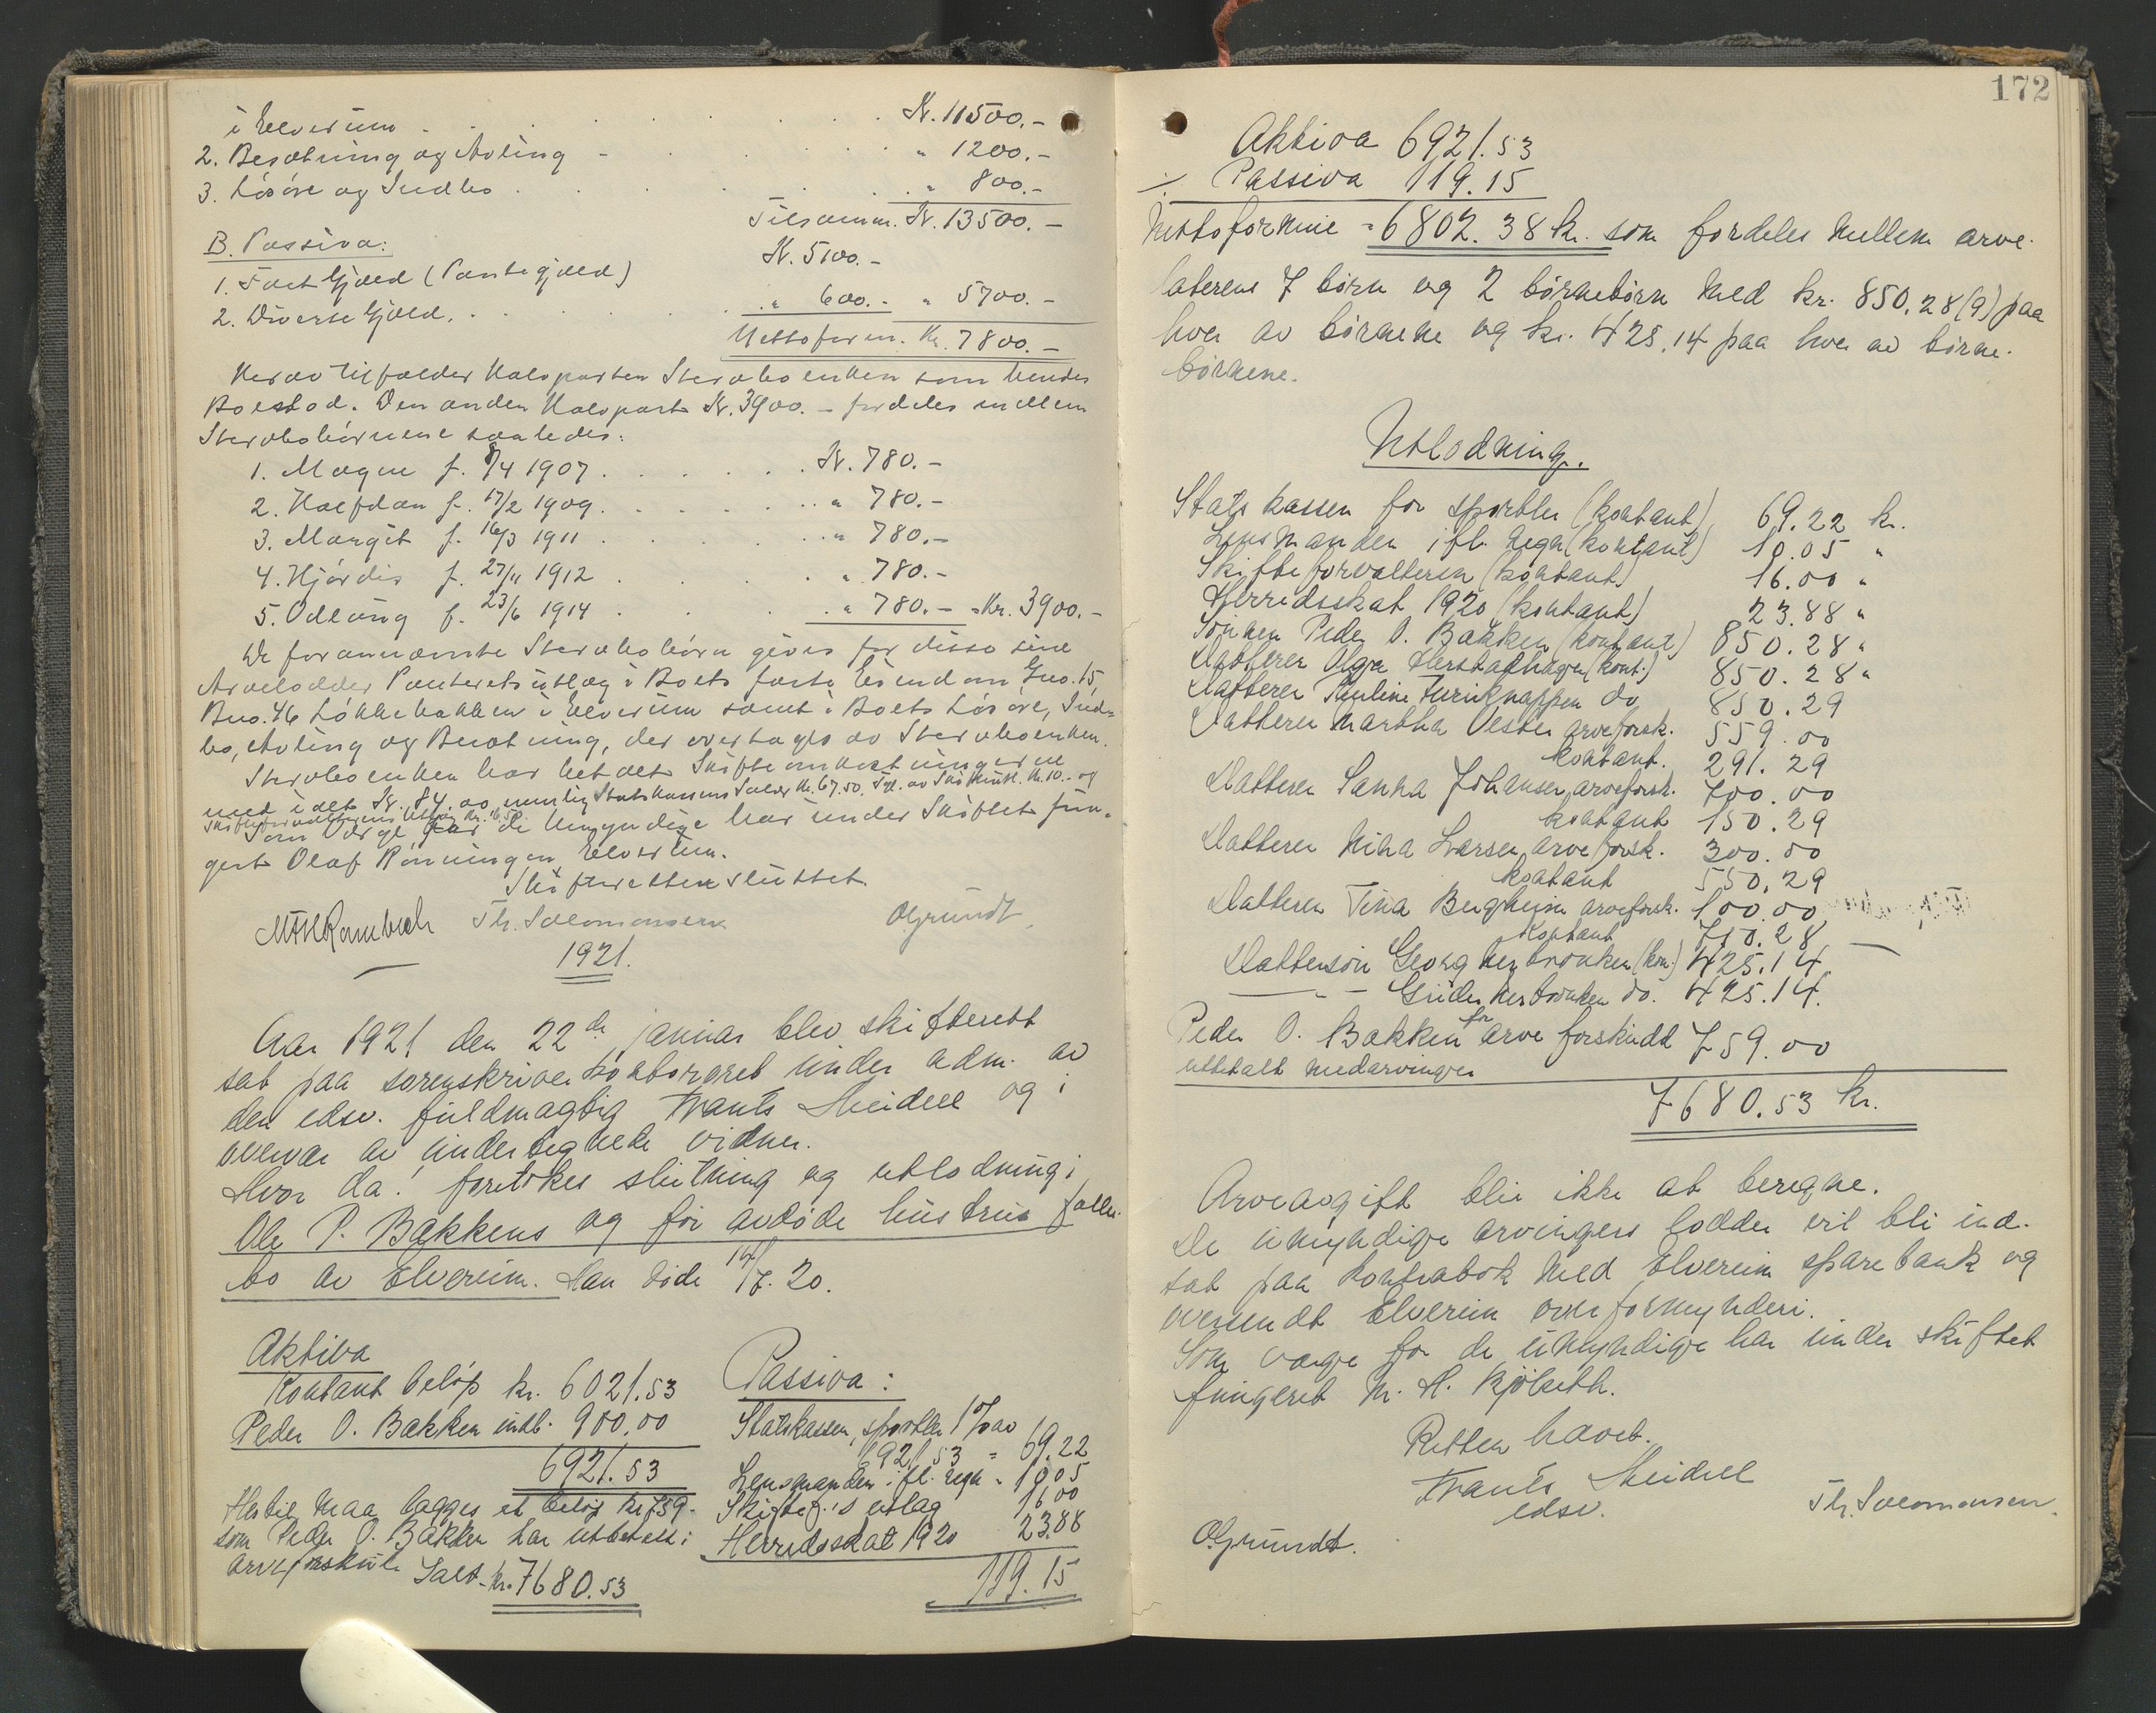 i Elverum . . . . . . Kr. 11500.-
2. Besætning og Avling - . . . . " 1200.-
3. Løsøre og Indbo . . . . . " 800.-
Tilsamm. Kr. 13500.-
B. Passiva:
1. Fast Gjæld (Pantegjæld) Kr. 5100.-
2. Diverse Gjæld. . . . " 600.- " 5700.-
Nettoform. Kr. 7800.-
Herav tilfalder Halvparten Stervboenken som hendes
Boeslod. Den anden Halvpart Kr. 3900.- fordeles mellem
Stervbobørnene saaledes:
1. Magne f. 8/4 1907 . . . . Kr. 780.-
2. Halfdan f. 17/2 1909. . . . " 780.-
3. Margit f. 16/3 1911 . . . " 780.-
4. Hjørdis f. 27/11 1912 . . . " 780.-
5. Odlaug f. 23/6 1914 . . . " 780.- = Kr. 3900.-
De forannævnte Stervbobørn gives for disse sine
Arvelodder Panteretsutlæg i Boets faste Eiendom Gno. 15,
Bno. 46 Løkkebakken i Elverum samt i Boets Løsøre, Ind-
bo, Avling og Besætning, der overtages av Stervboenken.
Stervboenken har betalt Skifteomkostningerne
med ialt Kr. 84.00, nemlig Statskassens Salær Kr. 67.50, Kr. 10.- og
Skifteforvalterens Utlæg Kr. 6.50.
Som Værge for de Umyndige har under Skiftet fun-
gert Olaf Rønningen, Elverum.
Skifteretten sluttet.
Th. Solomonsen OGrundt
1921.
Aar 1921 den 22de januar blev skifterett
sat paa sorenskriverkontoret under adm. av
den edsv. fuldmægtig Frants Meidell og i
overvær av undertegnede vidner.
Hvor da! foretokes slutning og utlodning i
Ole P. Bakkens og før avdøde hustrus fælles-
bo av Elverum. Han døde 14/7. 20.
Aktiva
Kontant beløp kr. 6021.53
Peder O. Bakken indb. 900.00
6921.53
Hertil maa lægges et beløp kr. 759.-
som Peder O. Bakken har utbetalt i
arveforskud. Ialt kr. 7680.53
Passiva:
Statskassen, sportler 1% av
6921.53 = 69.22
Lensmanden ifl. regn. " 10.05
Skiftef.'s utlæg 16.00
Herredsskat 1920 23.88
119.15
172
Aktiva 6921.53
÷ Passiva 119.15
Nettoformue = 6802.38 kr. som fordeles mellem arve-
laterens 7 børn og 2 børnebørn med kr. 850.28(9) paa
hver av børnene og kr. 425.14 paa hver av børne-
børnene.
Utlodning.
Statskassen for sportler (kontant) 69.22 kr.
Lensmanden ifl. regn (kontant) 10.05 "
Skifteforvalteren (kontant) 16.00 "
Herredsskat 1920 (kontant) 23.88 "
Sønnen Peder O. Bakken (kontant) 850.28 "
Datteren Olga Herstadhagen (kont.) 850.28 "
Datteren Pauline Furuknappen do 850.29
Datteren Martha Vesten arveforsk. 559.00
kontant. 291.29
Datteren Sanna Johansen arveforsk. 700.00
kontant 150.29
Datteren Nina Larsen arveforsk. 300.00
kontant 550.29
Datteren Tina Bergheim arveforsk. 100.00
kontant 750.28
Dattersøn Georg (kon.) 425.14
— " — do. 425.14.
Peder O. Bakken for arveforskudd 759.00
utbetalt medarvinger
7680.53 kr.
Arveavgift blir ikke at beregne.
De umyndige arvingers lodder vil bli ind-
sat paa kontrabok med Elverum sparebank og
oversendt Elverum overformynderi.
Som værge for de umyndige har under skiftet
fungeret M. H. Kjølseth.
Retten hævet.
Frants Meidell
edsv.
Th. Solomonsen.
OGrundt.